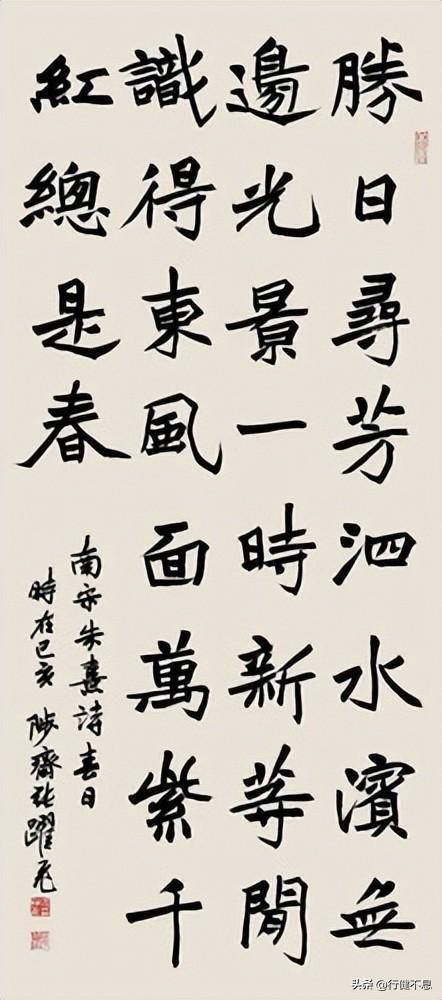 勝日尋芳泗水濱無
邊光景一時新等閒
識得東風面萬紫千
紅總是春
南宋朱熹詩春日
時在己亥 陟齋张躍飞
头条 @行健不息